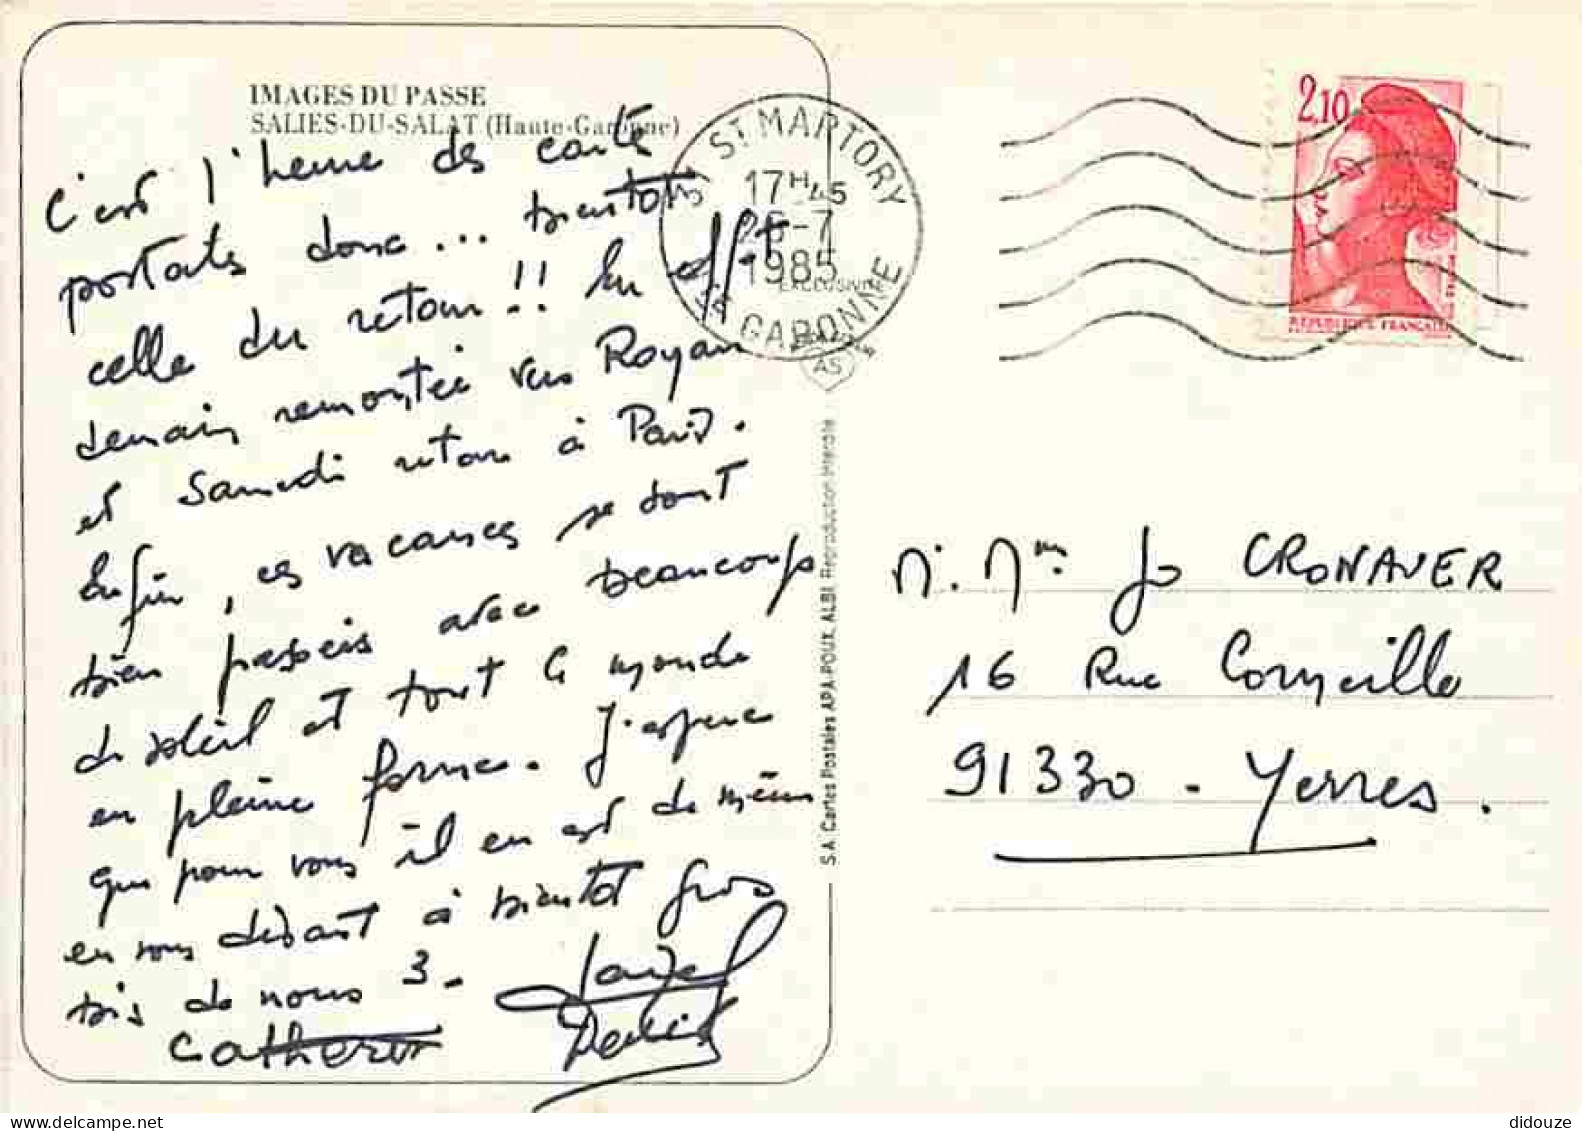 IMAGES DU PASSE
SALIES-DU-SALAT (Haute-Garonne)
C'est l'heure des carte
postales donc... bientôt
celle du retour!! En effet
demain remontée vers Royan
et Samedi retour à Paris.
Enfin, ces vacances se sont
bien passées avec beaucoup
de soleil et tout le monde
en pleine forme. J'espère
que pour vous il en est de même
en vous disant à bientôt Gros
bis de nous 3.
Catherine
Denis
ST MARTORY
17H45
25-7
1985
GARONNE
EXCLUSIVITE
AS
S.A. Cartes Postales APA-POUX, ALBI. Reproduction interdite
2,10
REPUBLIQUE FRANÇAISE
M. Mme Jo CRONAUER
16 Rue Corneille
91330 - Yerres.
didouze